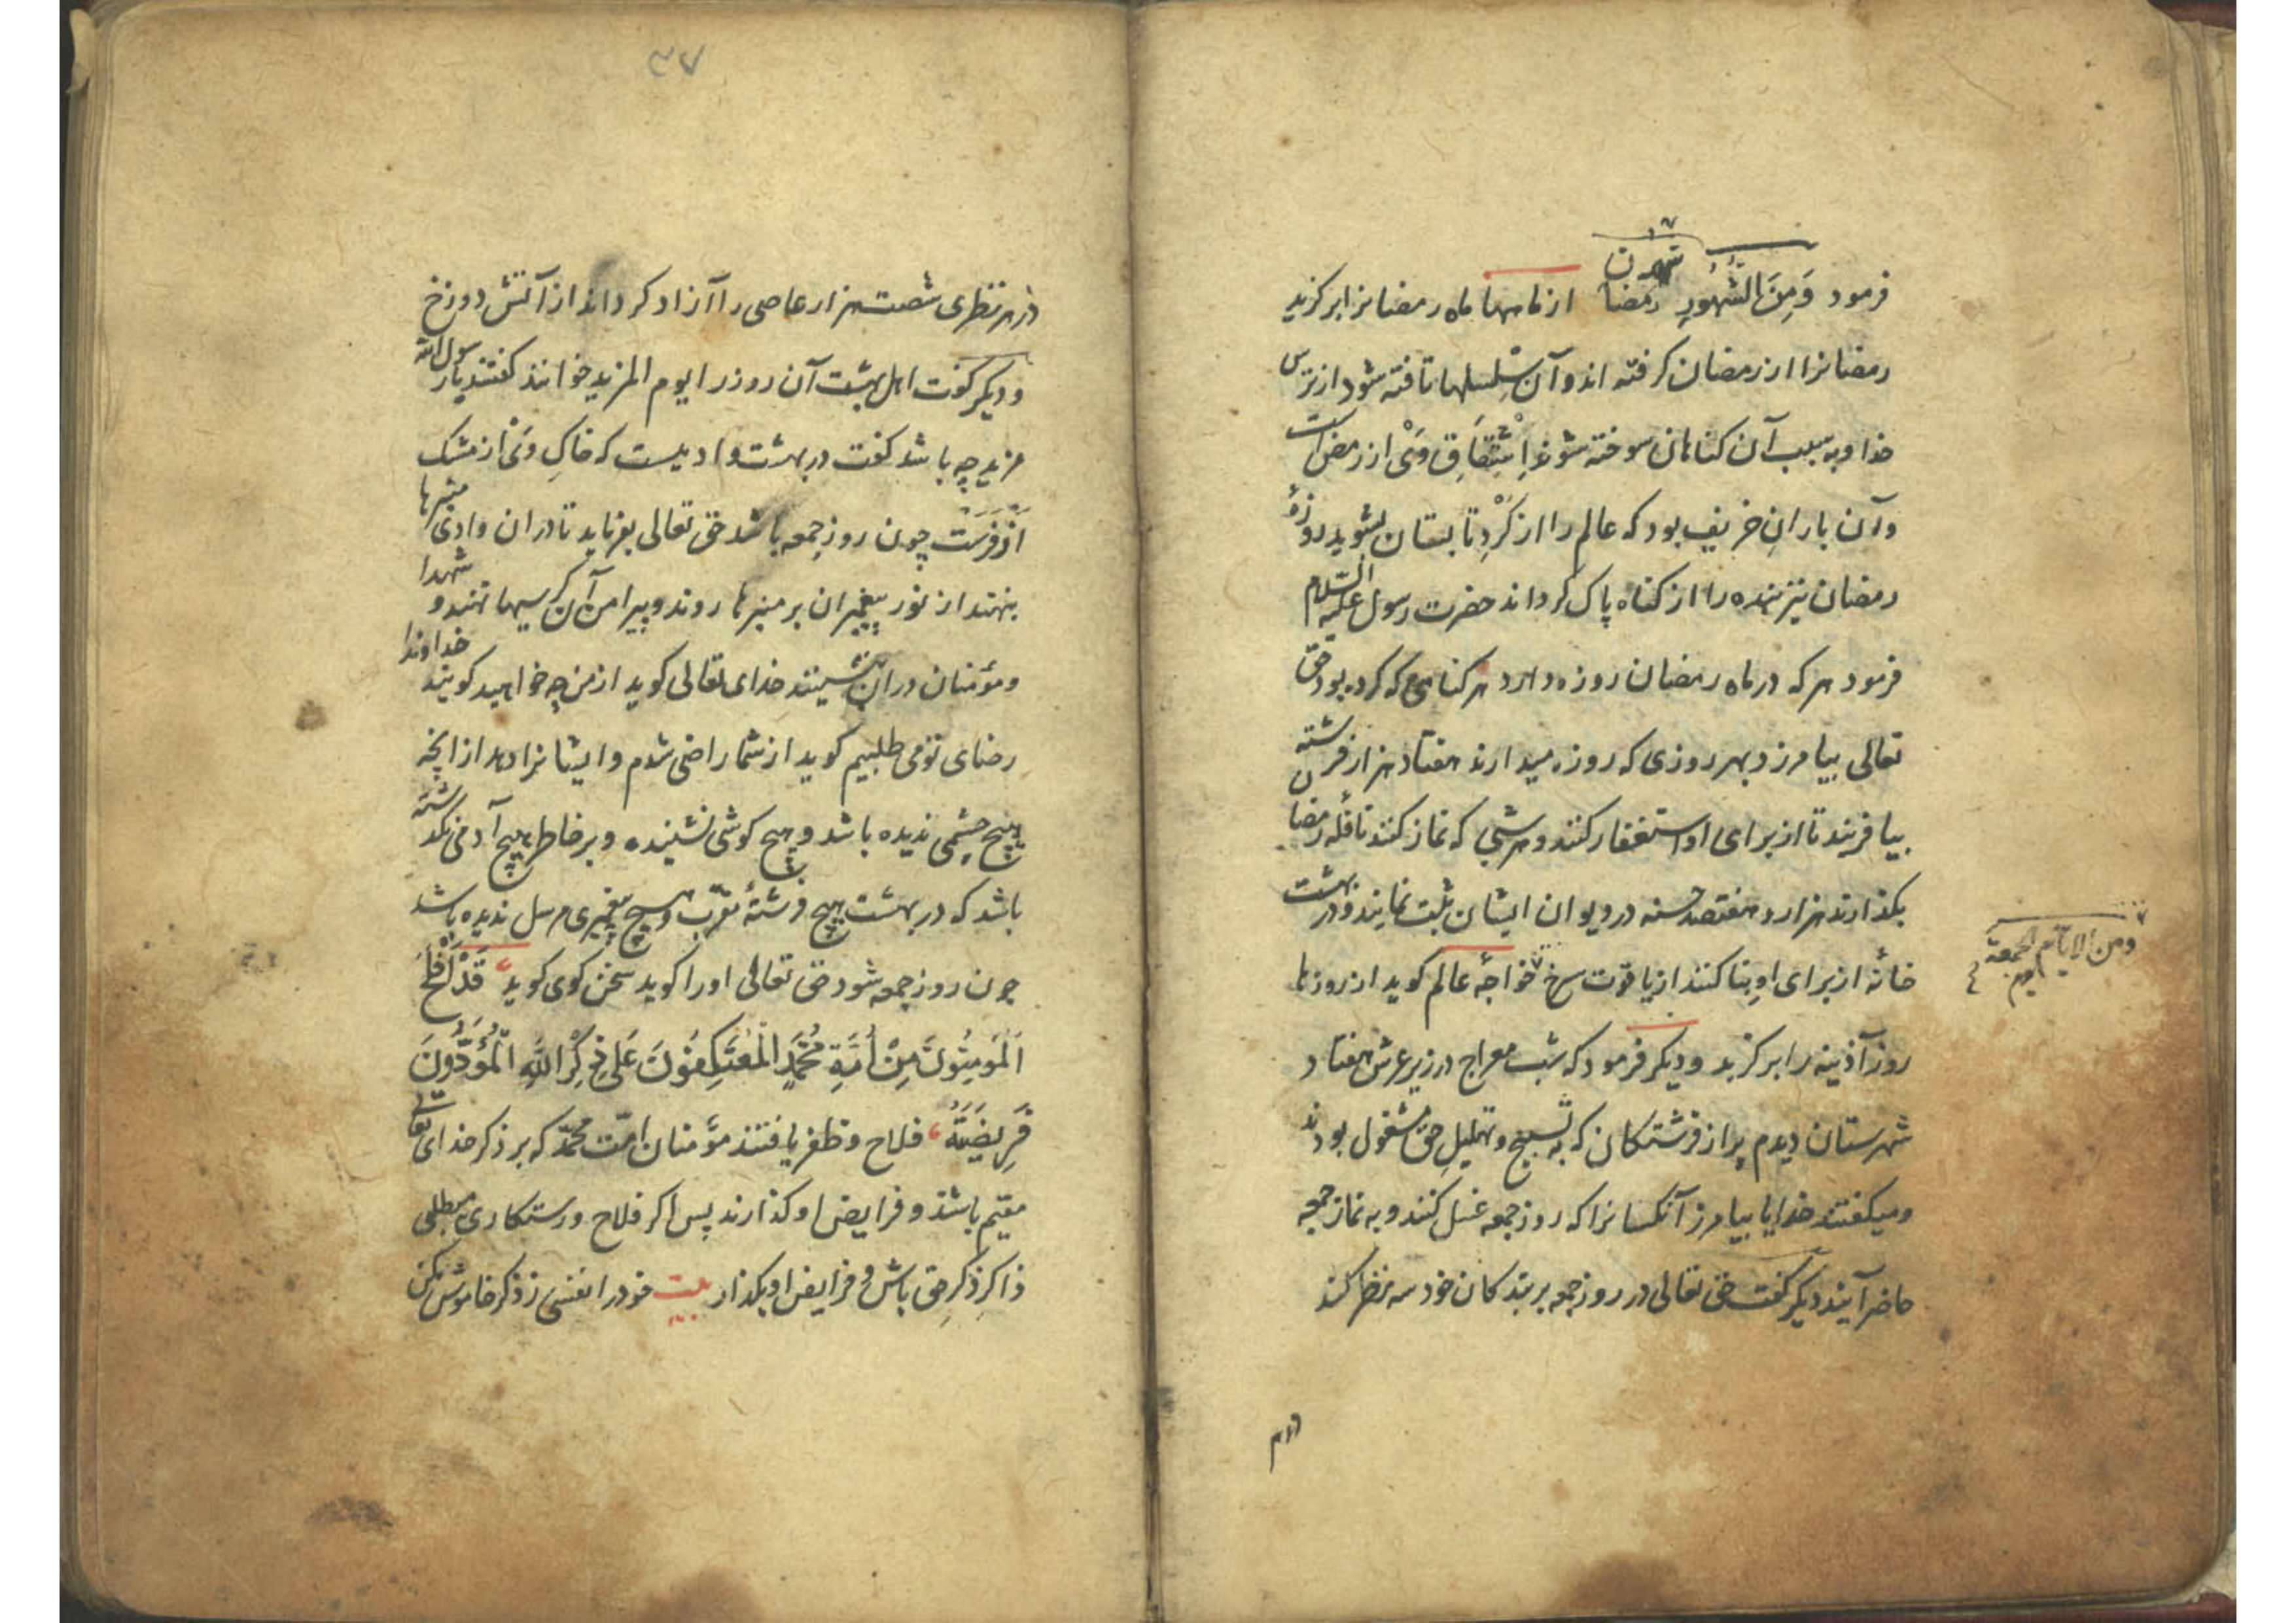 فرمود وَمِنَ الشُّهُورِ شهر رمضان از ماهها ماه رمضانرا برکزید
رمضانرا از رمضان کرفته اند و آن سلسلها تافته شود از ترس
خدا و به سبب آن کناهان سوخته شوند اِشْتِقَاقِ وَیْ از رمض است
و آن بارانِ خریف بود که عالم را از کَرْدِ تابستان بشوید روزهٔ
رمضان نیز بنده را از کناه پاک کرداند حضرت رسول علیه السلام
فرمود هر که در ماه رمضان روزه دارد هر کناهی که کرده بود حق
تعالی بیامرزد و بهر روزی که روزه میدارند هفتاد هزار فرشته
بیافریند تا از برای او استغفار کنند و هر شبی که نماز کنند نافلهٔ رمضان
بکذارند هزار و هفتصد حسنه در دیوان ایشان ثبت نمایند و در بهشت
خانه از برای او بنا کنند از یاقوت سرخ خواجهٔ عالم کوید از روزها
ومن الایام یوم الجمعة
روز آذینه را برکزید و دیکر فرمود که شب معراج در زیر عرش هفتاد
شهرستان دیدم پر از فرشتکان که به تسبیح و تهلیلِ حق مشغول بودند
و میکفتند خدایا بیامرز آنکسانرا که روز جمعه غسل کنند و به نماز جمعه
حاضر آیند دیکر کفت حق تعالی در روز جمعه بر بندکان خود سه نظر کند
در هر نظری
۳۷
در هر نظری شصت هزار عاصی را آزاد کرداند از آتش دوزخ
و دیکر کفت اهل بهشت آن روز را یوم المزید خوانند کفتند یا رسول الله
مزید چه باشد کفت در بهشت وادییست که خاکِ وَیْ از مشک
اَذْفَرَسْت چون روز جمعه باشد حق تعالی بفرماید تا در ان وادی منبرها
بنهند از نور پیغمبران بر منبرها روند و پیرامن آن کرسیها نهند و شهدا
و مؤمنان در ان نشینند خدای تعالی کوید از من چه خواهید کویند خداوندا
رضای تو می طلبیم کوید از شما راضی شدم و ایشانرا دهد از انچه
هیچ چشمی ندیده باشد و هیچ کوشی نشنیده و بر خاطر هیچ آدمی نکذشته
باشد که در بهشت هیچ فرشتهٔ مقرّب و هیچ پیغمبری مرسل ندیده باشد
چون روز جمعه شود حق تعالی او را کوید سخن کوی کوید قَدْ اَفْلَحَ
اَلْمُومِنُونَ مِنْ اُمَّةِ مُحَمَّدٍ الْمُعْتَكِفُونَ عَلى ذِكْرِ اللَّهِ الْمُؤَدُّونَ
فَرِيضَتَهُ فلاح و ظفر یافتند مؤمنان امّت محمّد که بر ذکر خدای تعالی
مقیم باشند و فرایض او کذارند پس اکر فلاح و رستکاری میطلبی
ذاکرِ ذکرِ حق باش و فرایض او بکذار بیت خود را نفسی ز ذکر خاموش مکن